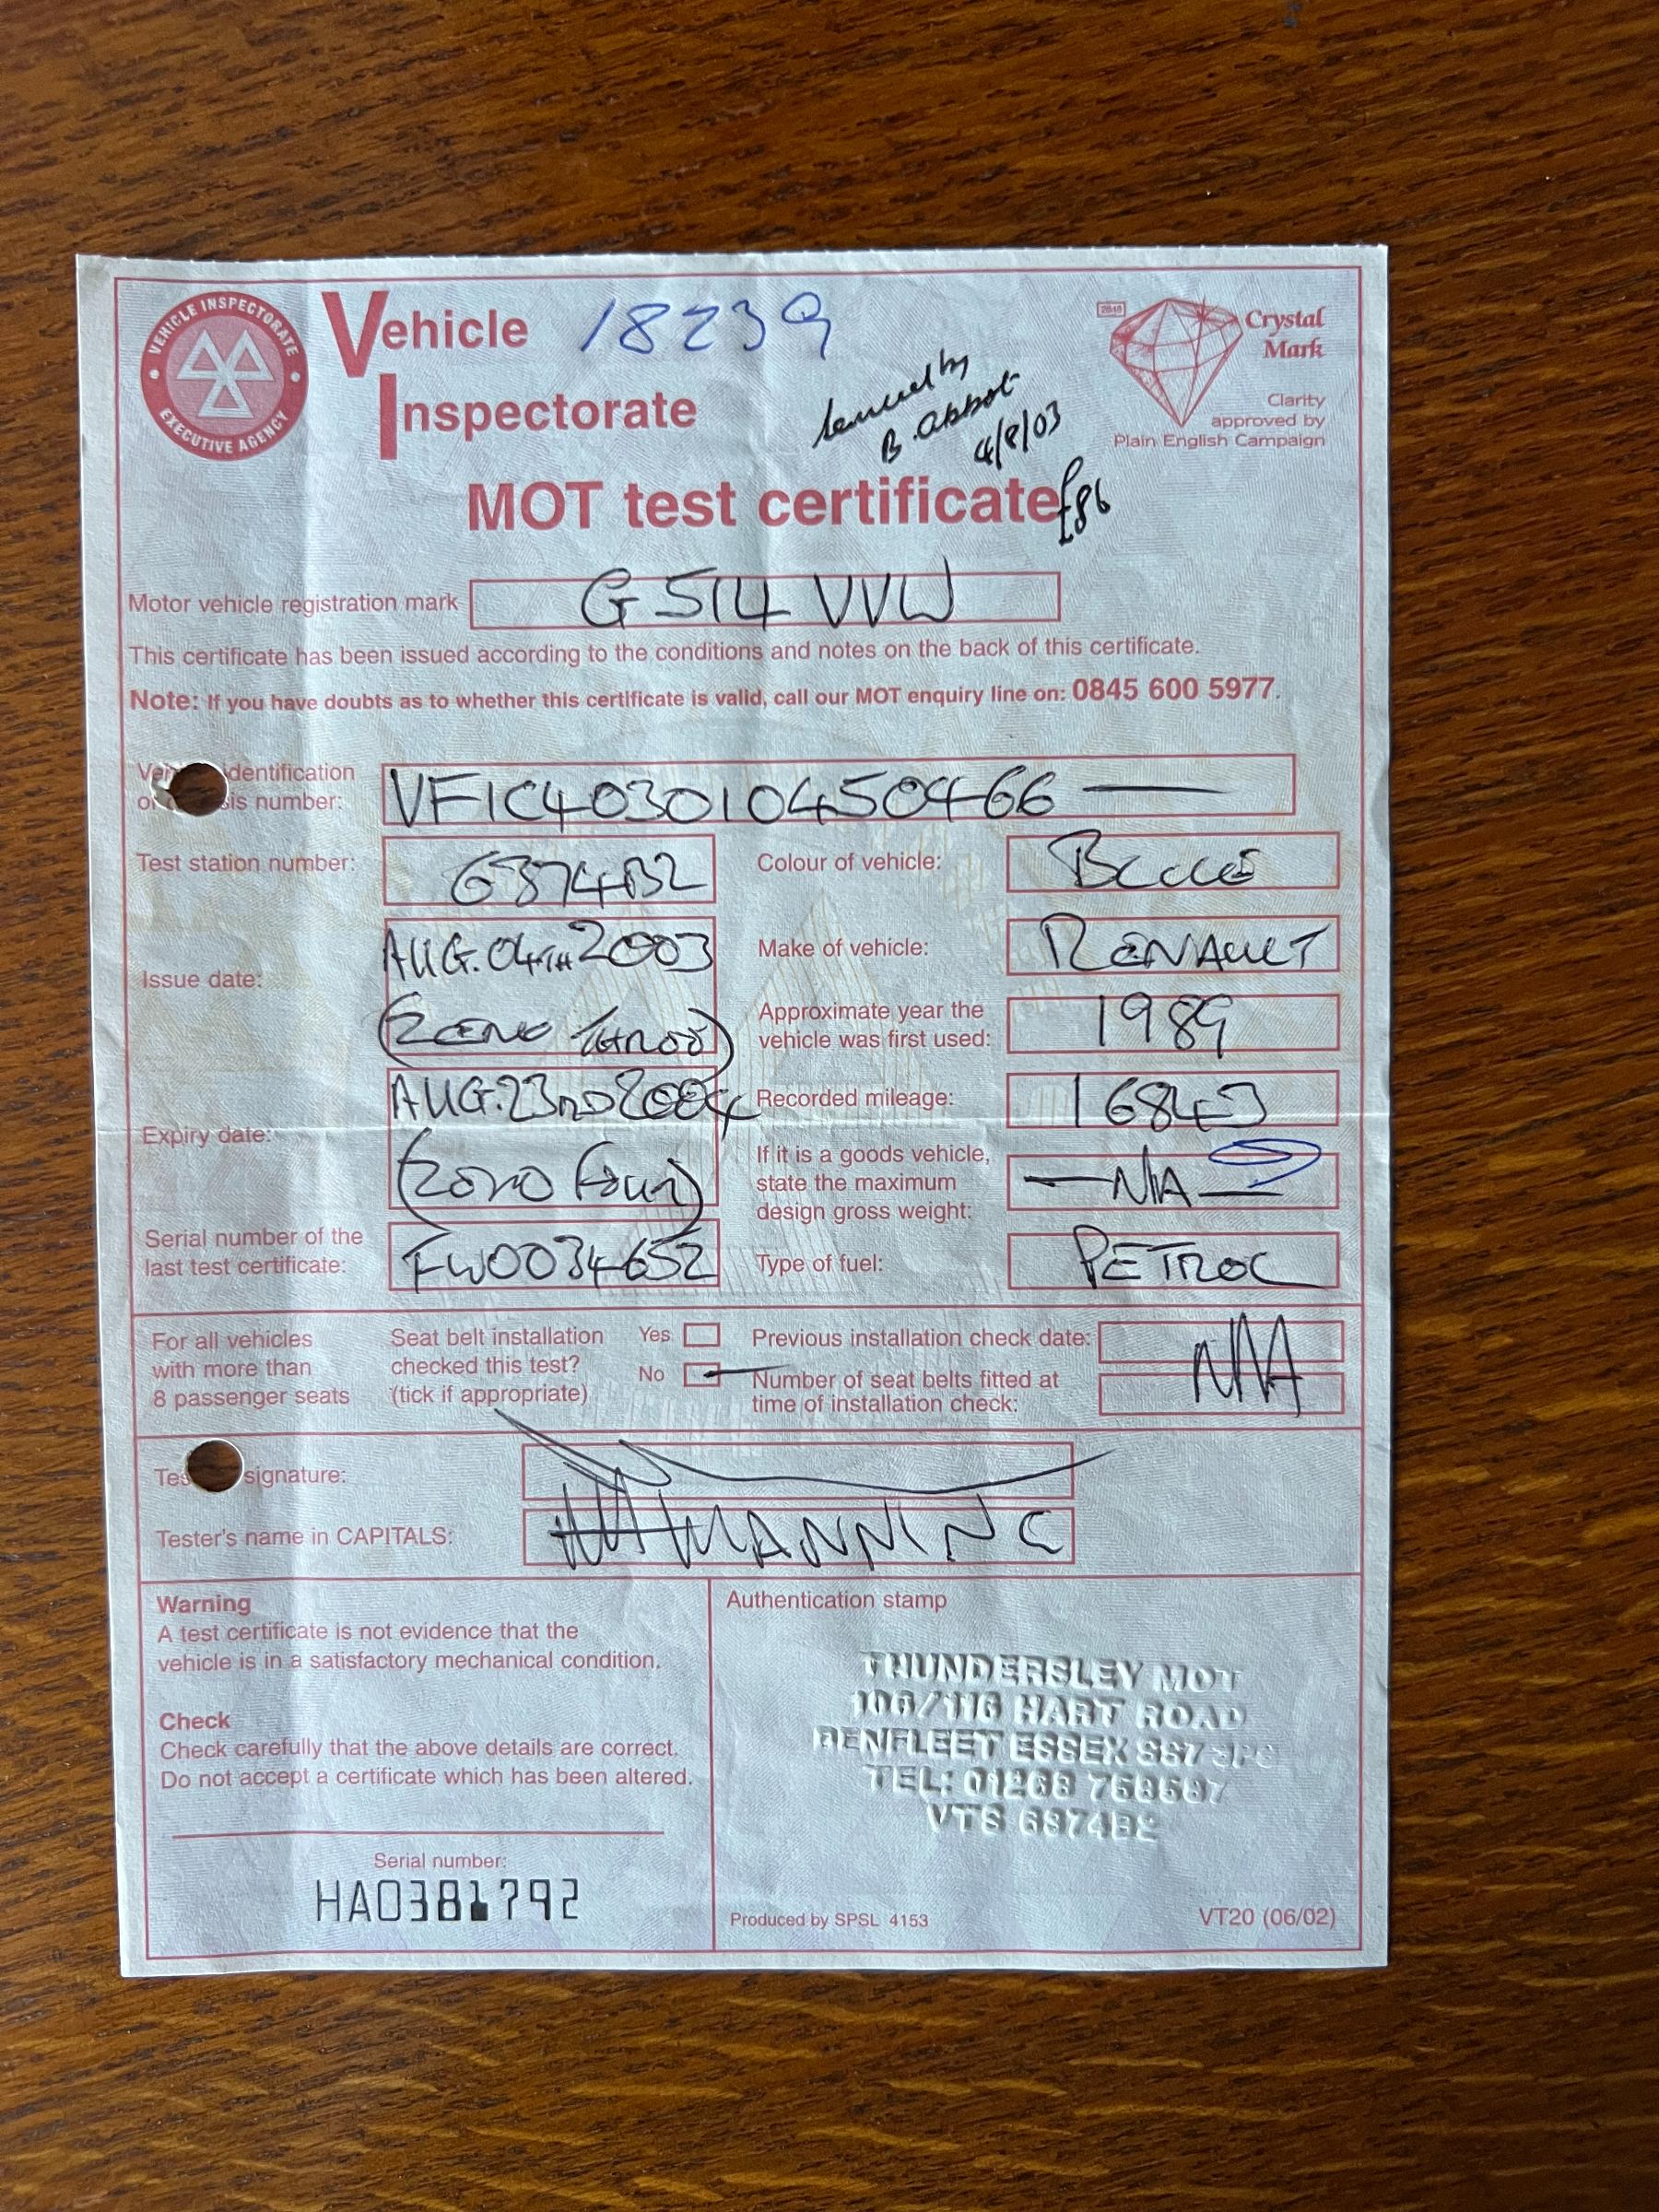 VEHICLE INSPECTORATE
EXECUTIVE AGENCY
Vehicle 18239
Inspectorate
B. Abbot
4/8/03
2848
Crystal
Mark
Clarity
approved by
Plain English Campaign
MOT test certificate £86
Motor vehicle registration mark G514 VVW
This certificate has been issued according to the conditions and notes on the back of this certificate.
Note: If you have doubts as to whether this certificate is valid, call our MOT enquiry line on: 0845 600 5977.
identification
number: VF1C4030104504466
Test station number: 6874B2
Colour of vehicle: BLUE
Issue date: AUG. 04TH 2003
(ZERO THREE)
Make of vehicle: RENAULT
Approximate year the
vehicle was first used: 1989
Expiry date: AUG. 23RD 2004
(ZERO FOUR)
Recorded mileage: 16843
If it is a goods vehicle,
state the maximum
design gross weight: N/A
Serial number of the
last test certificate: FW0034652
Type of fuel: PETROL
For all vehicles
with more than
8 passenger seats
Seat belt installation
checked this test?
(tick if appropriate)
Yes
No
Previous installation check date: N/A
Number of seat belts fitted at
time of installation check:
signature:
Tester's name in CAPITALS: MANNING
Warning
A test certificate is not evidence that the
vehicle is in a satisfactory mechanical condition.
Check
Check carefully that the above details are correct.
Do not accept a certificate which has been altered.
Serial number:
HA0381792
Authentication stamp
THUNDERSLEY MOT
106/116 HART ROAD
BENFLEET ESSEX SS7
TEL: 01268 758587
VTS 6874B2
Produced by SPSL 4153
VT20 (06/02)